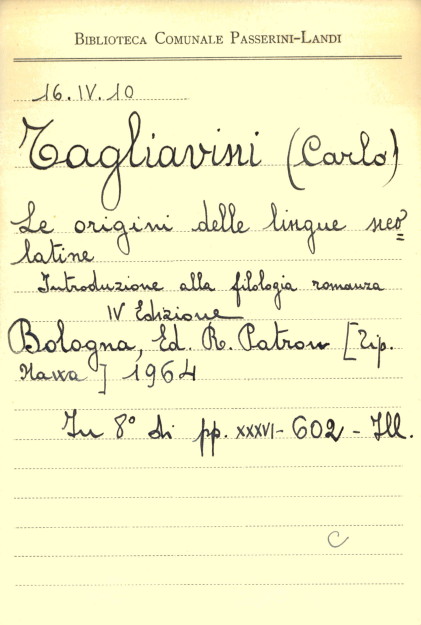 BIBLIOTECA COMUNALE PASSERINI-LANDI
16.IV.10
Tagliavini (Carlo)
Le origini delle lingue neo=
latine
Introduzione alla filologia romanza
IV Edizione
Bologna, Ed. R. Patron [Tip.
] 1964
In 8° di pp. XXXVI - 602 - Ill.
C